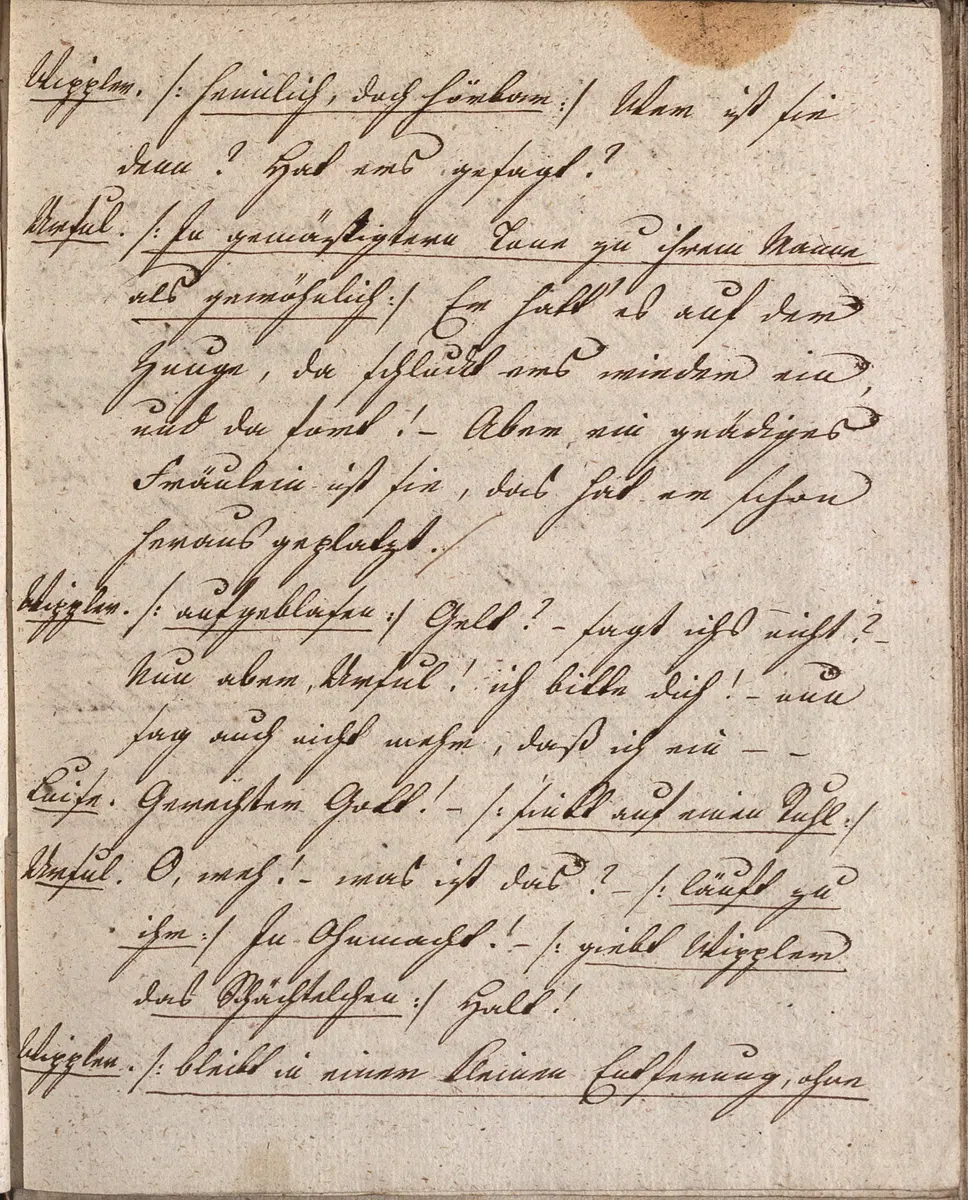 Wippler. /: heimlich, doch hörbar :/ Wer ist sie
denn? Hat ers gesagt?
Ursul. /: In gemäßigtern Tone zu ihrem Manne
als gewöhnlich :/ Er hatt' es auf der
Zunge, da schluckt ers wieder ein,
und da fort! – Aber ein gnädiges
Fräulein ist sie, das hat er schon
heraus geplatzt.
Wippler. /: aufgeblasen :/ Gelt? – sagt ichs nicht? –
Nun aber, Ursul! ich bitte dich! – nun
sag auch nicht mehr, daß ich ein – –
Luise. Gerechter Gott! – /: sinkt auf einen Stuhl :/
Ursul. O, weh! – was ist das? – /: läuft zu
ihr :/ In Ohnmacht! – /: giebt Wippler
das Schächtelchen :/ Halt!
Wippler. /: bleibt in einer kleinen Entfernung, ohne